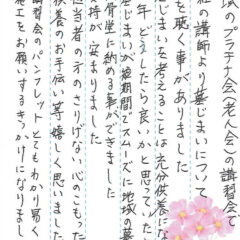 域のプラチナ会(老人会)の講習会で
社の講師より墓じまいについて
を聴く事がありました
じまいを考えることは充分供養にな
年 どぇしたら良いかと思っていた
じまいが短期間でスムーズに地域の墓
骨堂に納める事ができました
持が安まりました
担当者の方のさりげない心のこもった
供養のお手伝い等嬉しく思いました
講習会のパンフレット とてもわかり易く
施工をお願いするきっかけになりまし